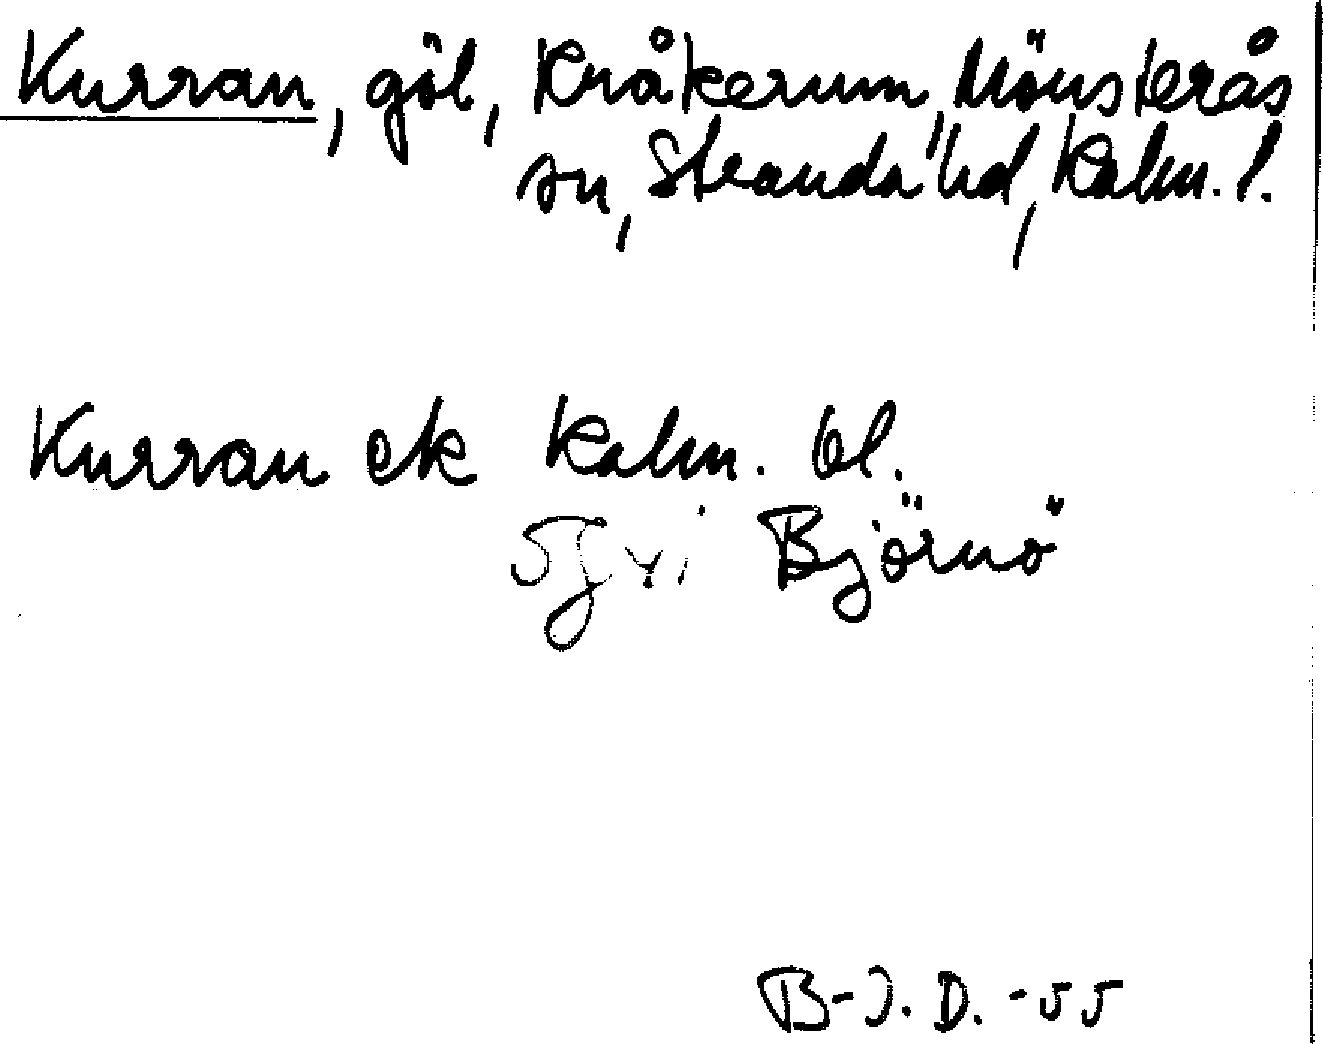 Kurran, göl, Kråkerum, Mönsterås
sn, Stranda hd, Kalm. l.
Kurran ek Kalm. bl.
5G vi Björnö
B-J. D. -55